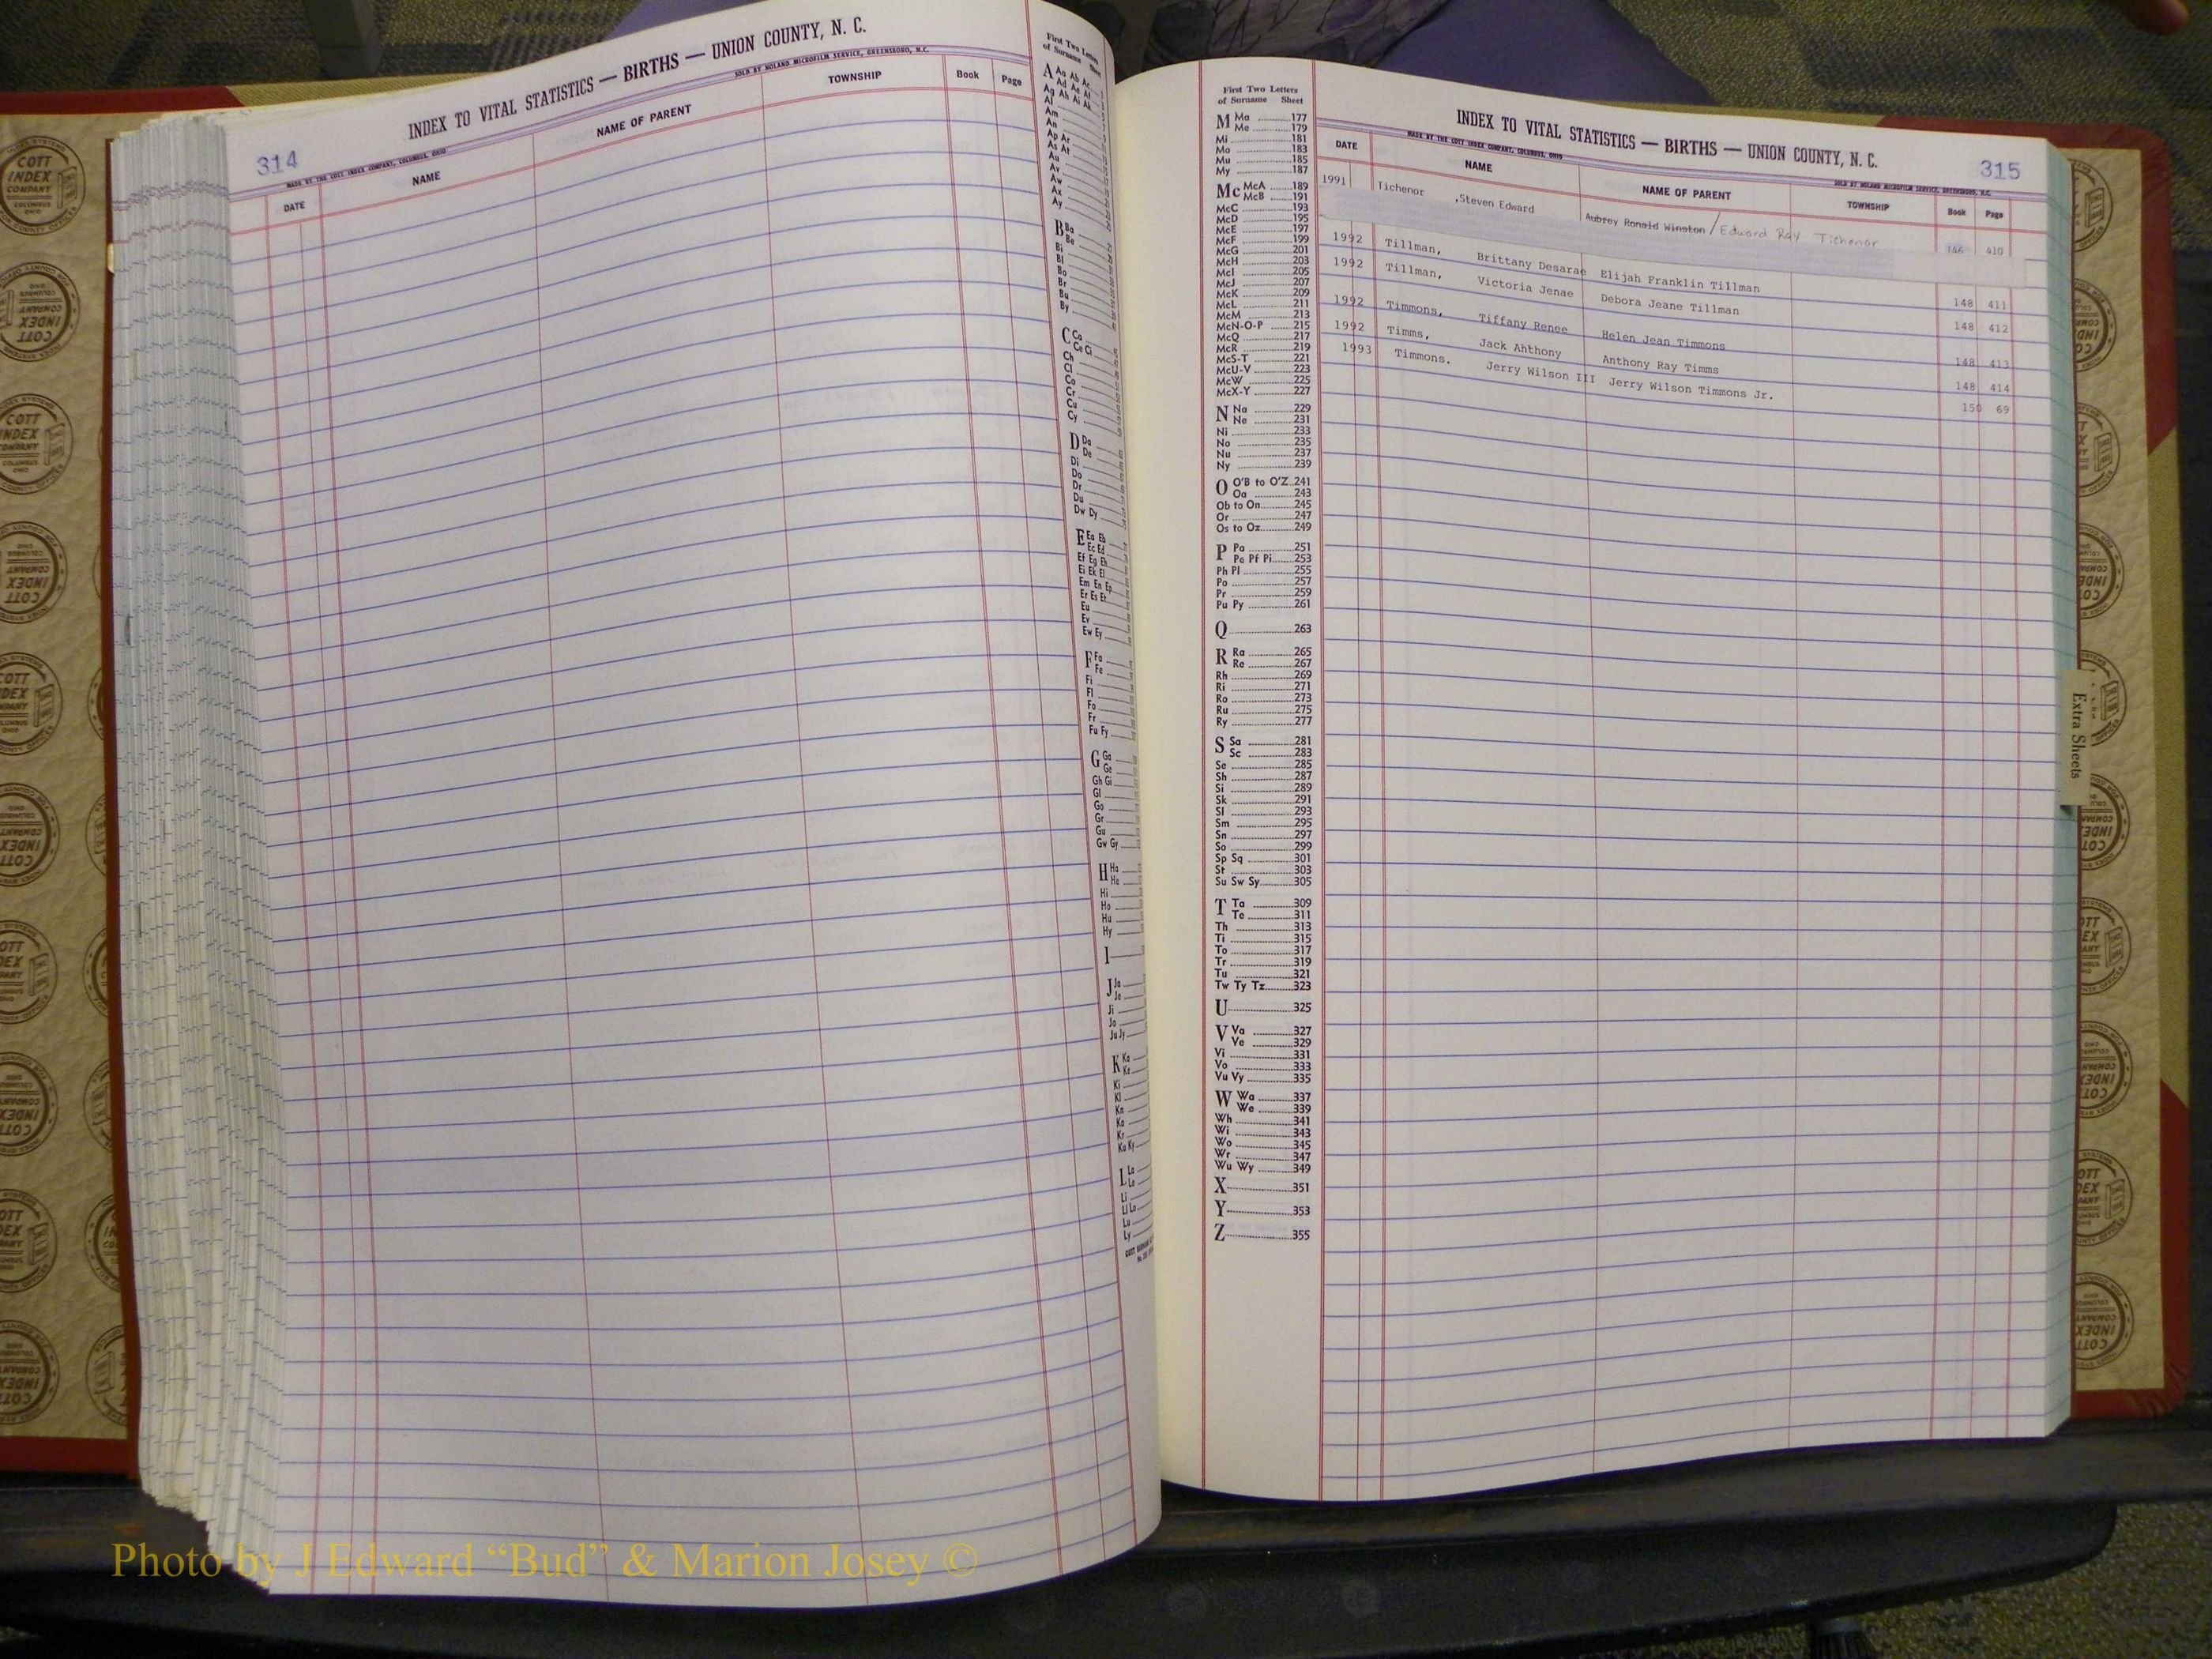 INDEX TO VITAL STATISTICS — BIRTHS — UNION COUNTY, N. C.
314
MADE BY THE COTT INDEX COMPANY, COLUMBUS, OHIO
SOLD BY NOLAND MICROFILM SERVICE, GREENSBORO, N.C.
DATE NAME NAME OF PARENT TOWNSHIP Book Page
First Two Letters
of Surname Sheet
A Aa Ab Ac
Ad Ae Af
Ag Ah Ai Ak
Al
Am
An
Ap Ar
As At
Au
Av
Aw
Ax
Ay
B Ba
Be
Bi
Bl
Bo
Br
Bu
By
C Ca
Ce Ci
Ch
Cl
Co
Cr
Cu
Cy
D Da
De
Di
Do
Dr
Du
Dw Dy
E Ea Eb
Ec Ed
Ef Eg Eh
Ei Ek El
Em En Ep
Er Es Et
Eu
Ev
Ew Ey
F Fa
Fe
Fi
Fl
Fo
Fr
Fu Fy
G Ga
Ge
Gh Gi
Gl
Go
Gr
Gu
Gw Gy
H Ha
He
Hi
Ho
Hu
Hy
I
J Ja
Je
Ji
Jo
Ju Jy
K Ka
Ke
Ki
Kl
Kn
Ko
Kr
Ku Ky
L La
Le
Li
Ll Lo
Lu
Ly
First Two Letters
of Surname Sheet
M Ma 177
Me 179
Mi 181
Mo 183
Mu 185
My 187
Mc McA 189
McB 191
McC 193
McD 195
McE 197
McF 199
McG 201
McH 203
McI 205
McJ 207
McK 209
McL 211
McM 213
McN-O-P 215
McQ 217
McR 219
McS-T 221
McU-V 223
McW 225
McX-Y 227
N Na 229
Ne 231
Ni 233
No 235
Nu 237
Ny 239
O O'B to O'Z 241
Oa 243
Ob to On 245
Or 247
Os to Oz 249
P Pa 251
Pe Pf Pi 253
Ph Pl 255
Po 257
Pr 259
Pu Py 261
Q 263
R Ra 265
Re 267
Rh 269
Ri 271
Ro 273
Ru 275
Ry 277
S Sa 281
Sc 283
Se 285
Sh 287
Si 289
Sk 291
Sl 293
Sm 295
Sn 297
So 299
Sp Sq 301
St 303
Su Sw Sy 305
T Ta 309
Te 311
Th 313
Ti 315
To 317
Tr 319
Tu 321
Tw Ty Tz 323
U 325
V Va 327
Ve 329
Vi 331
Vo 333
Vu Vy 335
W Wa 337
We 339
Wh 341
Wi 343
Wo 345
Wr 347
Wu Wy 349
X 351
Y 353
Z 355
INDEX TO VITAL STATISTICS — BIRTHS — UNION COUNTY, N. C.
315
MADE BY THE COTT INDEX COMPANY, COLUMBUS, OHIO
SOLD BY NOLAND MICROFILM SERVICE, GREENSBORO, N.C.
DATE NAME NAME OF PARENT TOWNSHIP Book Page
1991 Tichenor ,Steven Edward Aubrey Ronald Winston / Edward Ray Tichenor 146 410
1992 Tillman, Brittany Desarae Elijah Franklin Tillman 148 411
1992 Tillman, Victoria Jenae Debora Jeane Tillman 148 412
1992 Timmons, Tiffany Renee Helen Jean Timmons 148 413
1992 Timms, Jack Ahthony Anthony Ray Timms 148 414
1993 Timmons. Jerry Wilson III Jerry Wilson Timmons Jr. 150 69
Extra Sheets
COTT
INDEX
COMPANY
COLUMBUS
OHIO
Photo by J Edward “Bud” & Marion Josey ©